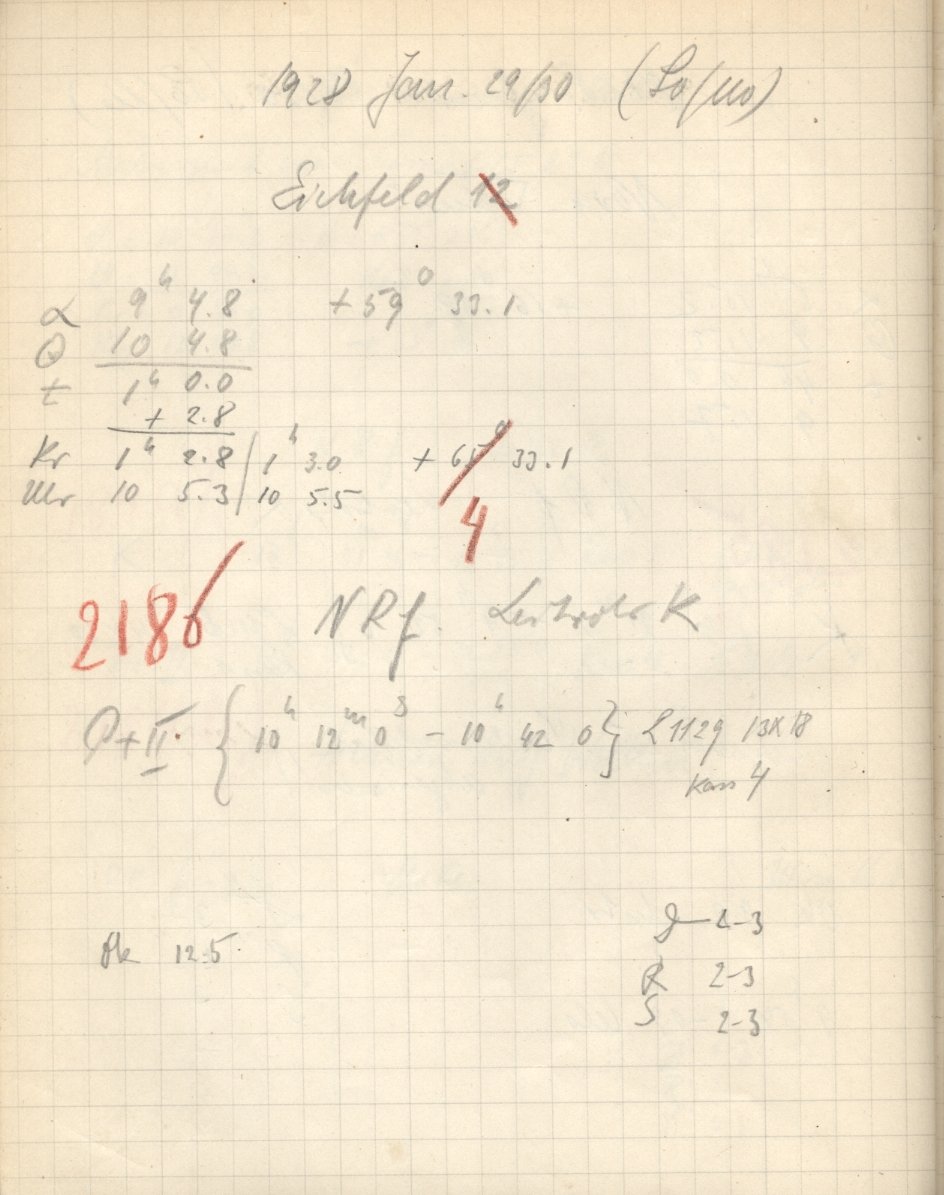 1928 Jan. 29/30 (So/Mo)
Eichfeld 12
α 9h 4.8 +59° 33.1
Θ 10 4.8
t 1h 0.0
+ 2.8
Kr 1h 2.8 | 1h 3.0 + 65° 33.1
Uhr 10 5.3 | 10 5.5
4
2186 NRf. Leitrohr K
P+II. { 10h 12m 0s - 10h 42 0 } L 1129 13x18
Kass 4
J 2-3
Bk 12.5
R 2-3
S 2-3